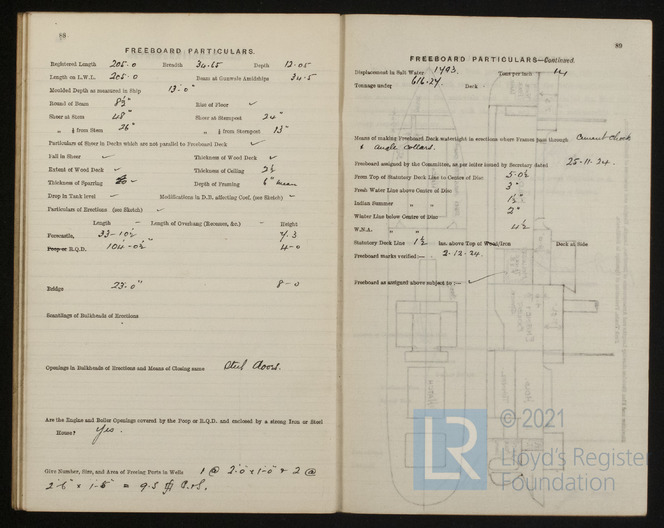 89
FREEBOARD PARTICULARS.
Registered Length 205.0 Breadth 34.65 Depth 12.05
Length on L.W.L. 205.0 Beam at Gunwale Amidships 34.5
Moulded Depth as measured in Ship 13'-0"
Round of Beam 8½" Rise of Floor ✓
Sheer at Stem 48" Sheer at Sternpost 24"
„ ⅛ from Stem 26" „ ⅛ from Sternpost 13"
Particulars of Sheer in Decks which are not parallel to Freeboard Deck ✓
Fall in Sheer ✓ Thickness of Wood Deck ✓
Extent of Wood Deck ✓ Thickness of Ceiling 2½
Thickness of Sparring Depth of Framing 6" mean
Drop in Tank level ✓ Modifications in D.B. affecting Coef. (see Sketch) ✓
Particulars of Erections (see Sketch) ✓
Length Length of Overhang (Recesses, &c.) Height
Forecastle, 33-10½ 7.3
Poop or R.Q.D. 104'-0½" 4-0
Bridge 23.0" 8-0
Scantlings of Bulkheads of Erections
Openings in Bulkheads of Erections and Means of Closing same Steel doors.
Are the Engine and Boiler Openings covered by the Poop or R.Q.D. and enclosed by a strong Iron or Steel
House? Yes.
Give Number, Size, and Area of Freeing Ports in Wells 1 @ 2'0" x 1'-0" & 2 @
2'-6" x 1'-5" = 9.5
89
FREEBOARD PARTICULARS—Continued.
Displacement in Salt Water 1493. Tons per inch 14
Tonnage under 616.24. Deck
Means of making Freeboard Deck watertight in erections where Frames pass through Cement chock
& angle collars.
Freeboard assigned by the Committee, as per letter issued by Secretary dated 25-11-24.
From Top of Statutory Deck Line to Centre of Disc 5-0½
Fresh Water Line above Centre of Disc 3"
Indian Summer „ „ 1½"
Winter Line below Centre of Disc 2"
W.N.A. „ „ 4½
Statutory Deck Line 1½ Ins. above Top of Wood/Iron Deck at Side
Freeboard marks verified:— 2-12-24.
Freeboard as assigned above subject to:— ✓
LR
© 2021
Lloyd's Register
Foundation